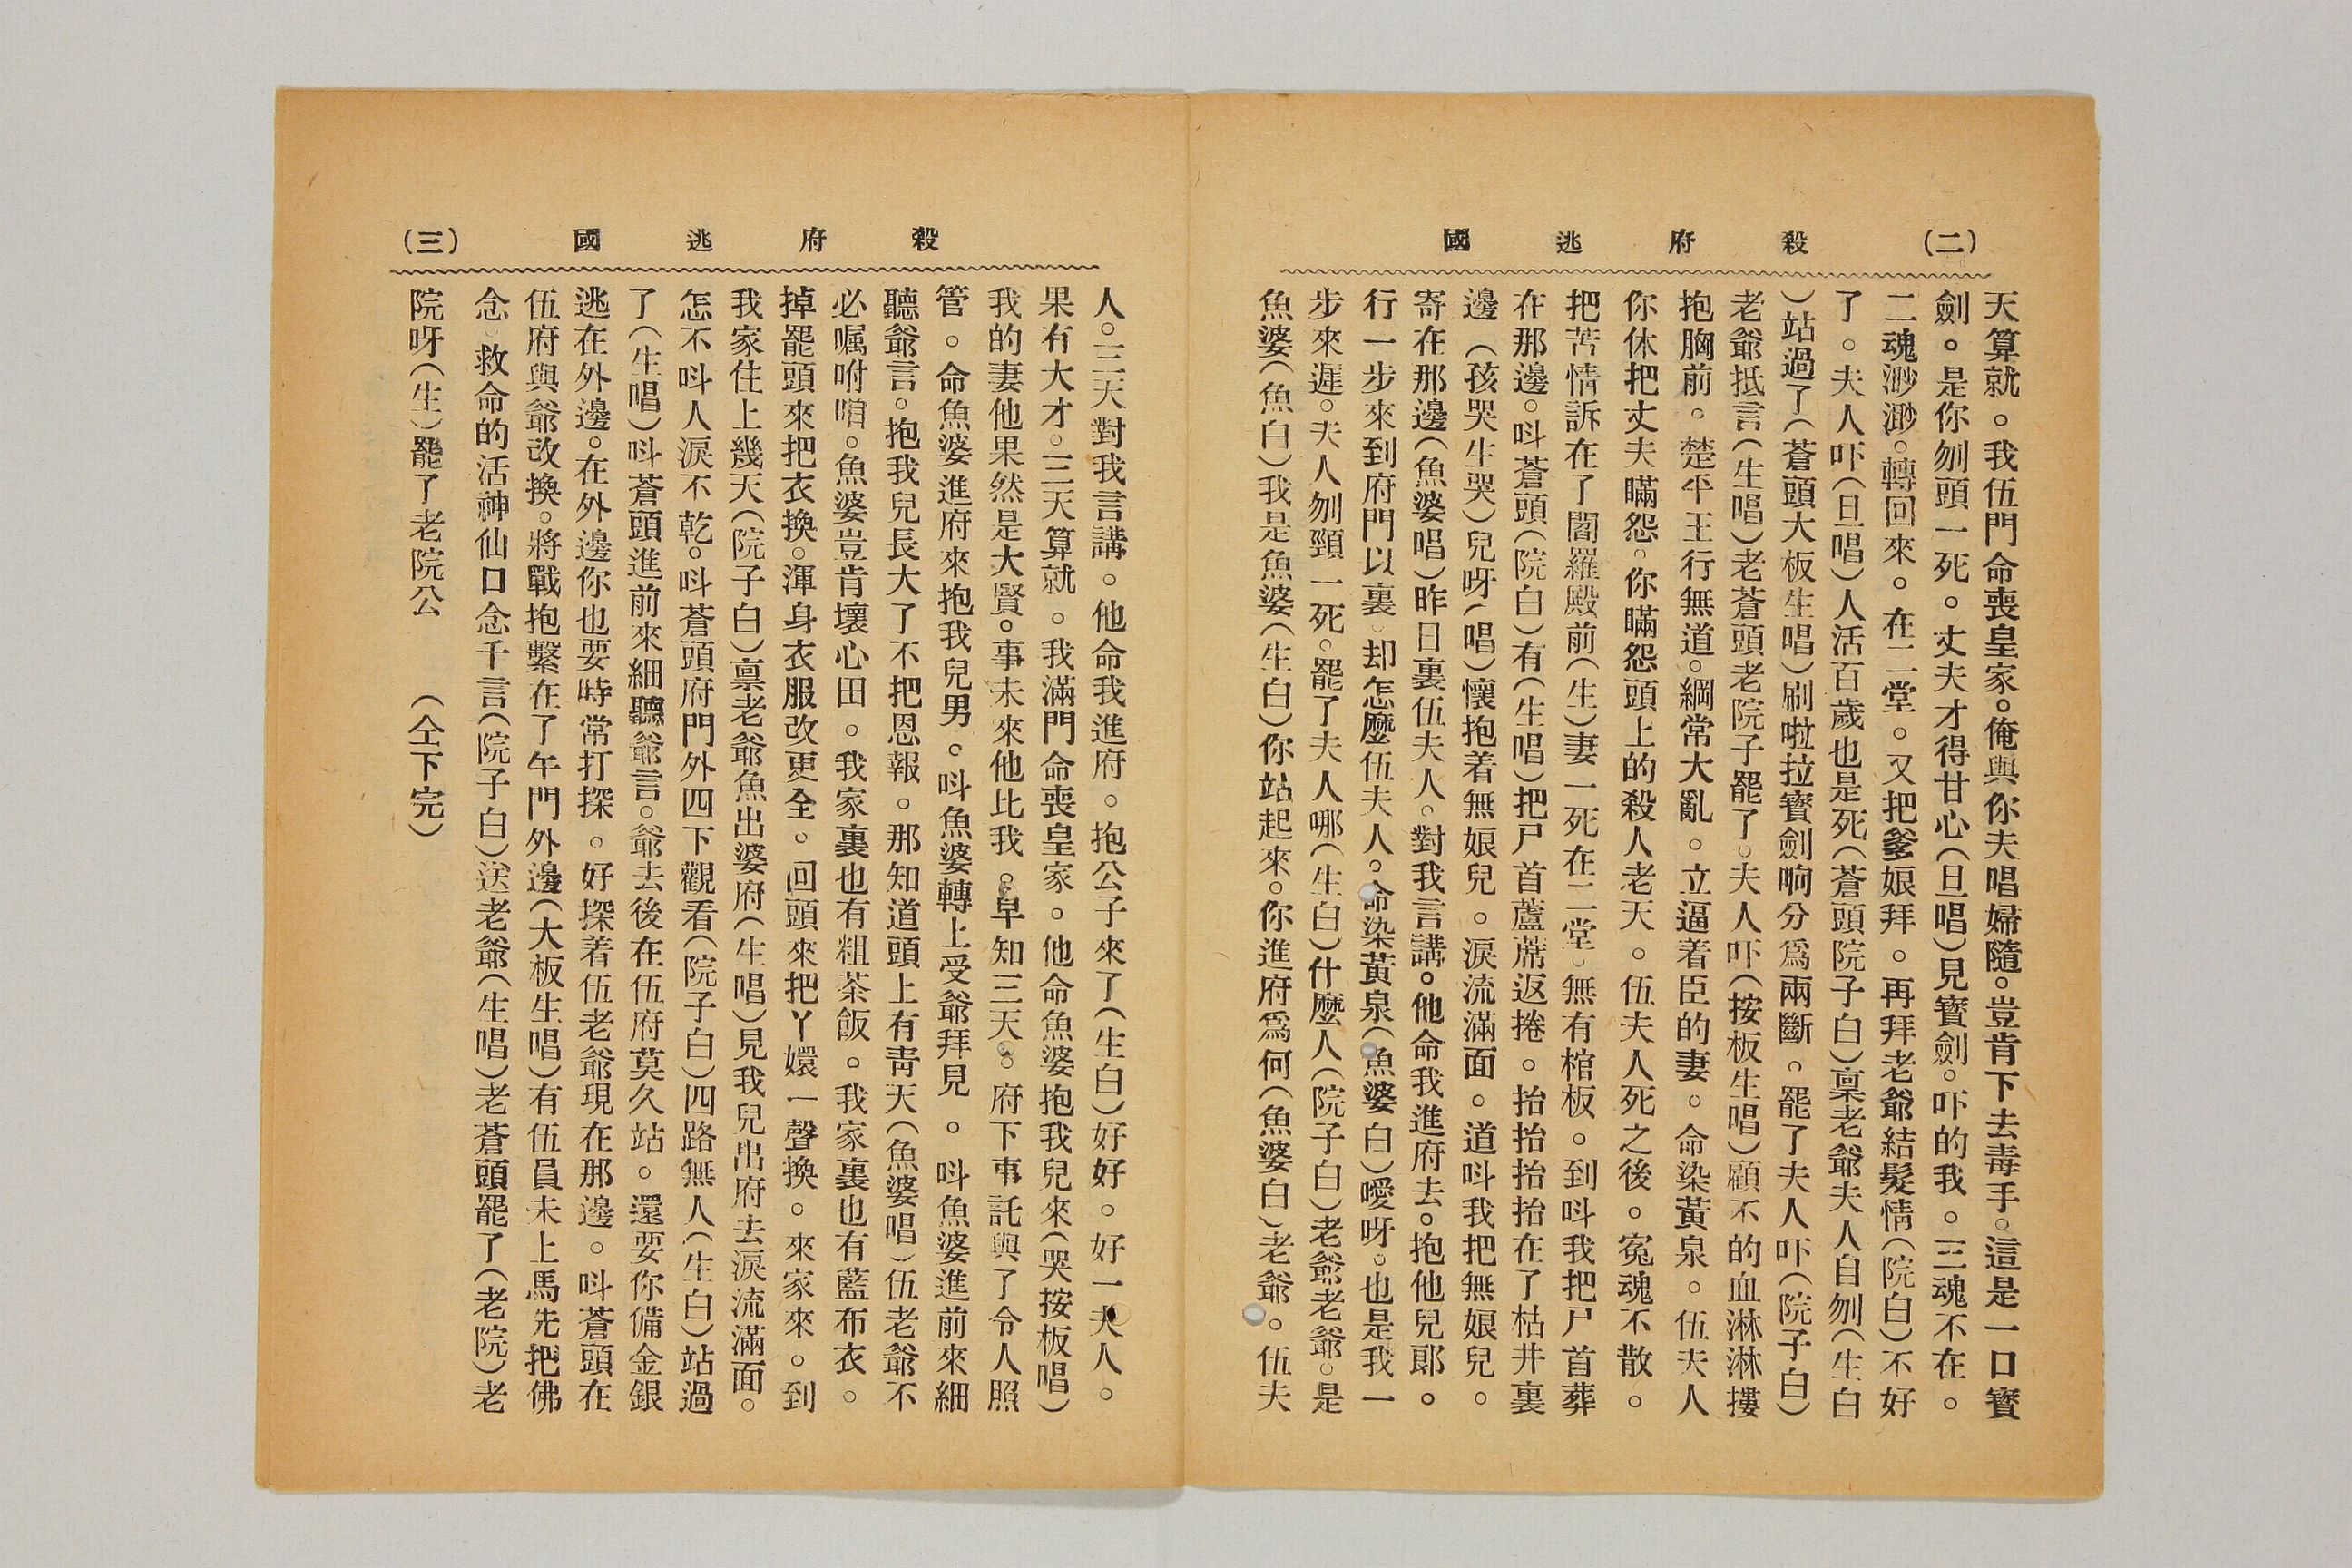 (二) 殺府逃國
天算就。我伍門命喪皇家。俺與你夫唱婦隨。豈肯下去毒手。這是一口寶
劍。是你刎頭一死。丈夫才得甘心(旦唱)見寶劍。吓的我。三魂不在。
二魂渺渺。轉回來。在二堂。又把爹娘拜。再拜老爺結髮情(院白)不好
了。夫人吓(旦唱)人活百歲也是死(蒼頭院子白)稟老爺夫人自刎(生白
)站過了(蒼頭大板生唱)刷啦拉寶劍响分爲兩斷。罷了夫人吓(院子白)
老爺抵言(生唱)老蒼頭老院子罷了。夫人吓(按板生唱)顧不的血淋淋摟
抱胸前。楚平王行無道。綱常大亂。立逼着臣的妻。命染黃泉。伍夫人
你休把丈夫瞞怨。你瞞怨頭上的殺人老天。伍夫人死之後。寃魂不散。
把苦情訴在了閻羅殿前(生)妻一死在二堂。無有棺板。到呌我把尸首葬
在那邊。呌蒼頭(院白)有(生唱)把尸首蘆蓆返捲。抬抬抬抬在了枯井裏
邊(孩哭生哭)兒呀(唱)懷抱着無娘兒。淚流滿面。道呌我把無娘兒。
寄在那邊(魚婆唱)昨日裏伍夫人。對我言講。他命我進府去。抱他兒郎。
行一步來到府門以裏。却怎麼伍夫人。命染黃泉(魚婆白)噯呀。也是我一
步來遲。夫人刎頸一死。罷了夫人哪(生白)什麼人(院子白)老爺老爺。是
魚婆(魚白)我是魚婆(生白)你站起來。你進府爲何(魚婆白)老爺。伍夫
(三) 殺府逃國
人。三天對我言講。他命我進府。抱公子來了(生白)好好。好一夫人。
果有大才。三天算就。我滿門命喪皇家。他命魚婆抱我兒來(哭按板唱)
我的妻他果然是大賢。事未來他比我。早知三天。府下事託與了令人照
管。命魚婆進府來抱我兒男。呌魚婆轉上受爺拜見。呌魚婆進前來細
聽爺言。抱我兒長大了不把恩報。那知道頭上有靑天(魚婆唱)伍老爺不
必嘱咐咱。魚婆豈肯壞心田。我家裏也有粗茶飯。我家裏也有藍布衣。
掉罷頭來把衣換。渾身衣服改更全。回頭來把丫嬛一聲換。來家來。到
我家住上幾天(院子白)稟老爺魚出婆府(生唱)見我兒出府去淚流滿面。
怎不呌人淚不乾。呌蒼頭府門外四下觀看(院子白)四路無人(生白)站過
了(生唱)呌蒼頭進前來細聽爺言。爺去後在伍府莫久站。還要你備金銀
逃在外邊。在外邊你也要時常打探。好探着伍老爺現在那邊。呌蒼頭在
伍府與爺改換。將戰抱繫在了午門外邊(大板生唱)有伍員未上馬先把佛
念。救命的活神仙口念千言(院子白)送老爺(生唱)老蒼頭罷了(老院)老
院呀(生)罷了老院公　　(仝下完)